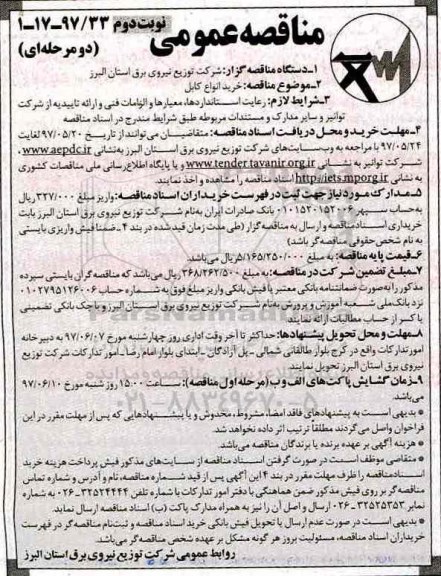 مناقصه عمومی
نوبت دوم ۹۷/۳۳-۱۷-۱
(دو مرحله‌ای)
۱-دستگاه مناقصه گزار: شرکت توزیع نیروی برق استان البرز
۲-موضوع مناقصه: خرید انواع کابل
۳-شرایط لازم: رعایت استانداردها، معیارها و الزامات فنی و ارائه تاییدیه از شرکت
توانیر و سایر مدارک و مستندات مربوطه طبق شرایط مندرج در اسناد مناقصه
۴-مهلت خرید و محل دریافت اسناد مناقصه: متقاضیان می‌توانند از تاریخ ۹۷/۰۵/۲۰ لغایت
۹۷/۰۵/۲۴ با مراجعه به وب‌سایت‌های شرکت توزیع نیروی برق استان البرز به‌نشانی www.aepdc.ir ،
شرکت توانیر به نشانی www.tender.tavanir.org.ir و یا پایگاه اطلاع‌رسانی ملی مناقصات کشوری
به نشانی http://iets.mporg.ir اسناد مناقصه را مشاهده و اخذ نمایند.
۵-مدارک مورد نیاز جهت ثبت در فهرست خریداران اسناد مناقصه: واریز مبلغ ۳۲۷/۰۰۰ ریال
به‌حساب سپهر ۰۱۰۱۵۲۰۱۵۲۰۰۶ بانک صادرات ایران به‌نام شرکت توزیع نیروی برق استان البرز بابت
خریداری اسناد مناقصه و ارسال به مناقصه گزار (طی مدت زمان قید شده در بند ۴-ضمنا فیش واریزی بایستی
به نام شخص حقوقی مناقصه‌گر باشد)
۶-قیمت پایه مناقصه: به مبلغ ۵/۱۶۵/۲۵۰/۰۰۰ ریال می‌باشد.
۷-مبلغ تضمین شرکت در مناقصه: به مبلغ ۳۶۸/۲۶۲/۵۰۰ ریال می‌باشد که مناقصه گران بایستی سپرده
مذکور را به‌صورت ضمانتنامه بانکی معتبر یا فیش بانکی واریز مبلغ فوق به شماره حساب ۰۱۰۲۷۹۵۱۲۶۰۰۶
نزد بانک‌ملی شعبه آموزش و پرورش به‌نام شرکت توزیع نیروی برق استان البرز و یا چک بانکی تضمینی
یا کسر از حساب مطالبات ارائه نمایند.
۸-مهلت و محل تحویل پیشنهادها: حداکثر تا آخر وقت اداری روز چهارشنبه مورخ ۹۷/۰۶/۰۷ به دبیرخانه
امور تدارکات واقع در کرج بلوار طالقانی شمالی-پل آزادگان-ابتدای بلوار امام رضا-امور تدارکات شرکت توزیع
نیروی برق استان البرز تحویل نمایند.
۹-زمان گشایش پاکت‌های الف و ب (مرحله اول مناقصه): ساعت ۱۵:۰۰ روز شنبه مورخ ۹۷/۰۶/۱۰
می‌باشد.
* بدیهی است به پیشنهادهای فاقد امضا، مشروط، مخدوش و یا پیشنهادهایی که پس از مهلت مقرر در این
فراخوان واصل می‌گردند مطلقا ترتیب اثر داده نخواهد شد.
* هزینه آگهی بر عهده برنده یا برندگان مناقصه می‌باشد.
* متقاضی موظف است در صورت گرفتن اسناد مناقصه از سایت‌های مذکور فیش پرداخت هزینه خرید
اسناد مناقصه را ظرف مهلت مقرر در بند ۴ این آگهی پس از قید شماره مناقصه، نام و آدرس و شماره تماس
مناقصه گر بر روی فیش مذکور ضمن هماهنگی با دفتر امور تدارکات با شماره تلفن ۳۲۵۲۴۴۴۴-۰۲۶ به شماره
نمابر ۳۲۵۲۵۳۵۳-۰۲۶ ارسال و اصل آن را نیز به همراه مدارک پاکت (ب) اسناد مناقصه ارسال نماید.
* بدیهی است در صورت عدم ارسال یا تحویل فیش بانکی خرید اسناد مناقصه و ثبت‌نام مناقصه‌گر در فهرست
خریداران اسناد مناقصه، مسئولیت بروز هر گونه مشکل بر عهده شخص مناقصه گر می‌باشد.
روابط عمومی شرکت توزیع نیروی برق استان البرز
۰۲۱-۸۸۳۴۹۶۷۰-۵